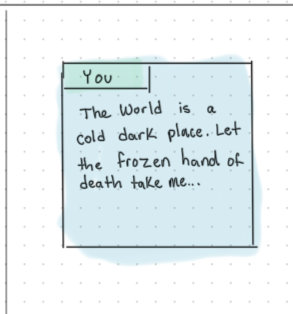 You
The World is a
cold dark place. Let
the frozen hand of
death take me...